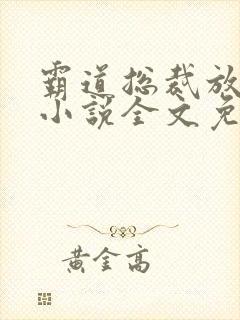 霸道总裁放
小说全文免
黄金高